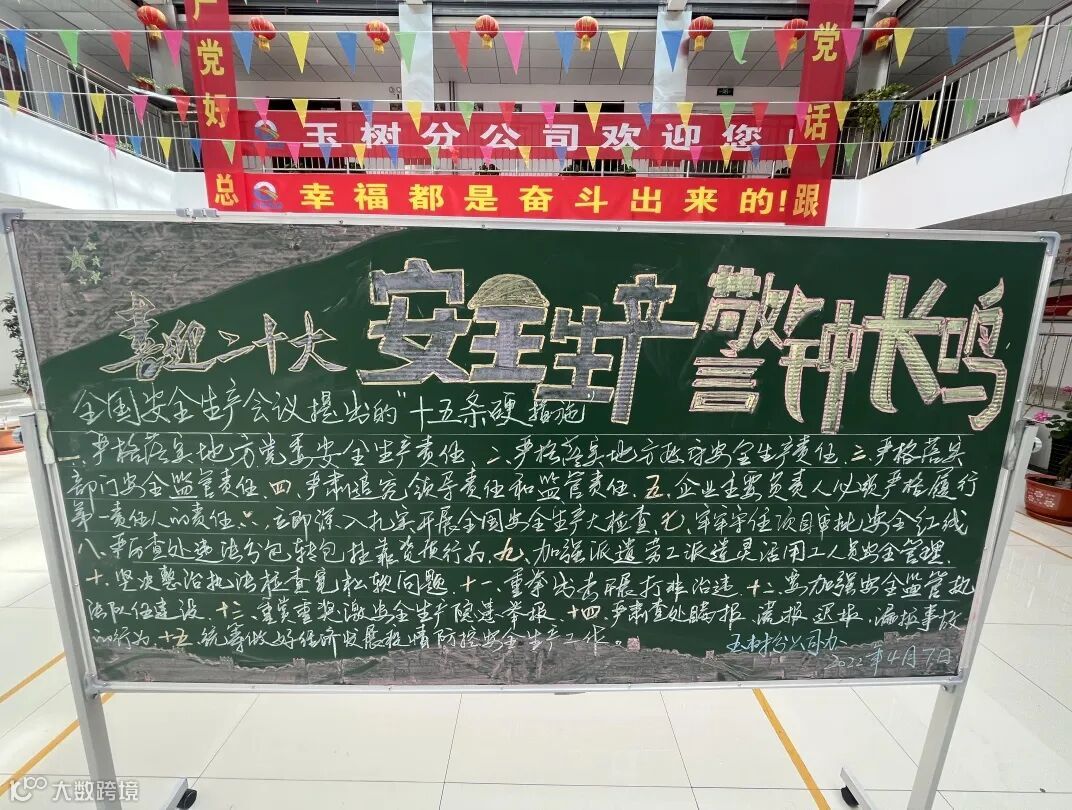 党好
总
党话
跟
玉树分公司欢迎您！
幸福都是奋斗出来的!
喜迎二十大
安全生产
警钟长鸣
全国安全生产会议提出的"十五条硬措施"
一、严格落实地方党委安全生产责任、二、严格落实地方政府安全生产责任、三、严格落实
部门安全监管责任、四、严肃追究领导责任和监管责任、五、企业主要负责人必须严格履行
第一责任人的责任、六、立即深入扎实开展全国安全生产大检查、七、牢牢守住项目审批安全红线
八、严厉查处违法分包转包挂靠资质行为、九、加强派遣劳工派遣灵活用工人员安全管理、
十、坚决整治执法检查宽松软问题、十一、重拳出击开展打非治违、十二、要加强安全监管执
法队伍建设、十三、重奖激励安全生产隐患举报、十四、严肃查处瞒报、谎报、迟报、漏报事故
的行为、十五、统筹做好经济发展疫情防控安全生产工作。
玉树分公司办
2022年4月7日
大数跨境